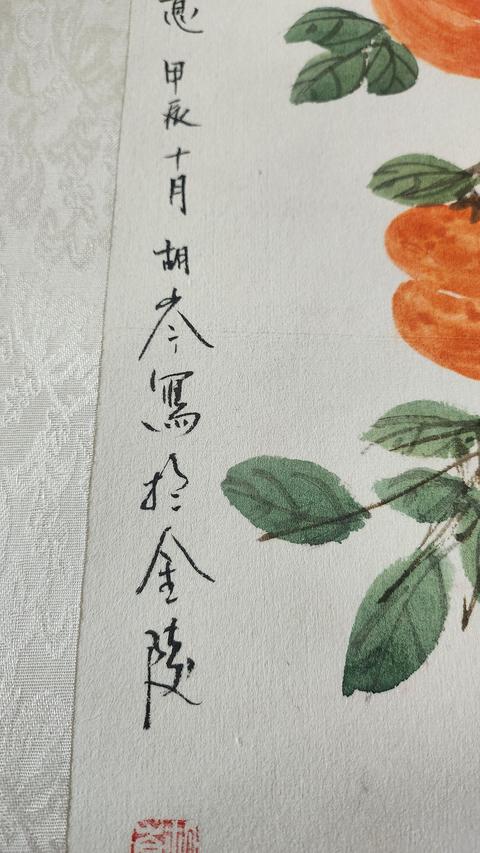 意 甲辰十月 胡岑寫於金陵